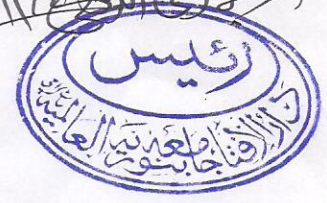 رئیس
دارالافتا جامعہ بنوریہ العالمیہ